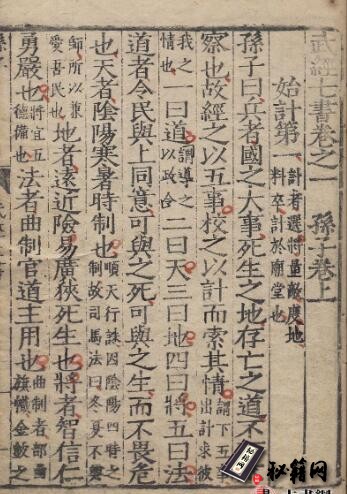 武經七書卷之一 孫子卷上
始計第 計者選將量敵度地
料卒計於廟堂也
孫子曰兵者國之大事死生之地存亡之道不
察也故經之以五事校之以計而索其情 謂下五事
出計求彼
我之
情也 一曰道 謂導之
以政令 二曰天三曰地四曰將五曰法
道者令民與上同意可與之死可與之生而不畏危
也天者陰陽寒暑時制也 順天行誅因陰陽四時之
制故司馬法曰冬夏不興
師所以兼
愛吾民也 地者遠近險易廣狹死生也將者智信仁
勇嚴也 將宜五
德備也 法者曲制官道主用也 曲制者部
旗幟金鼓之
秘籍网